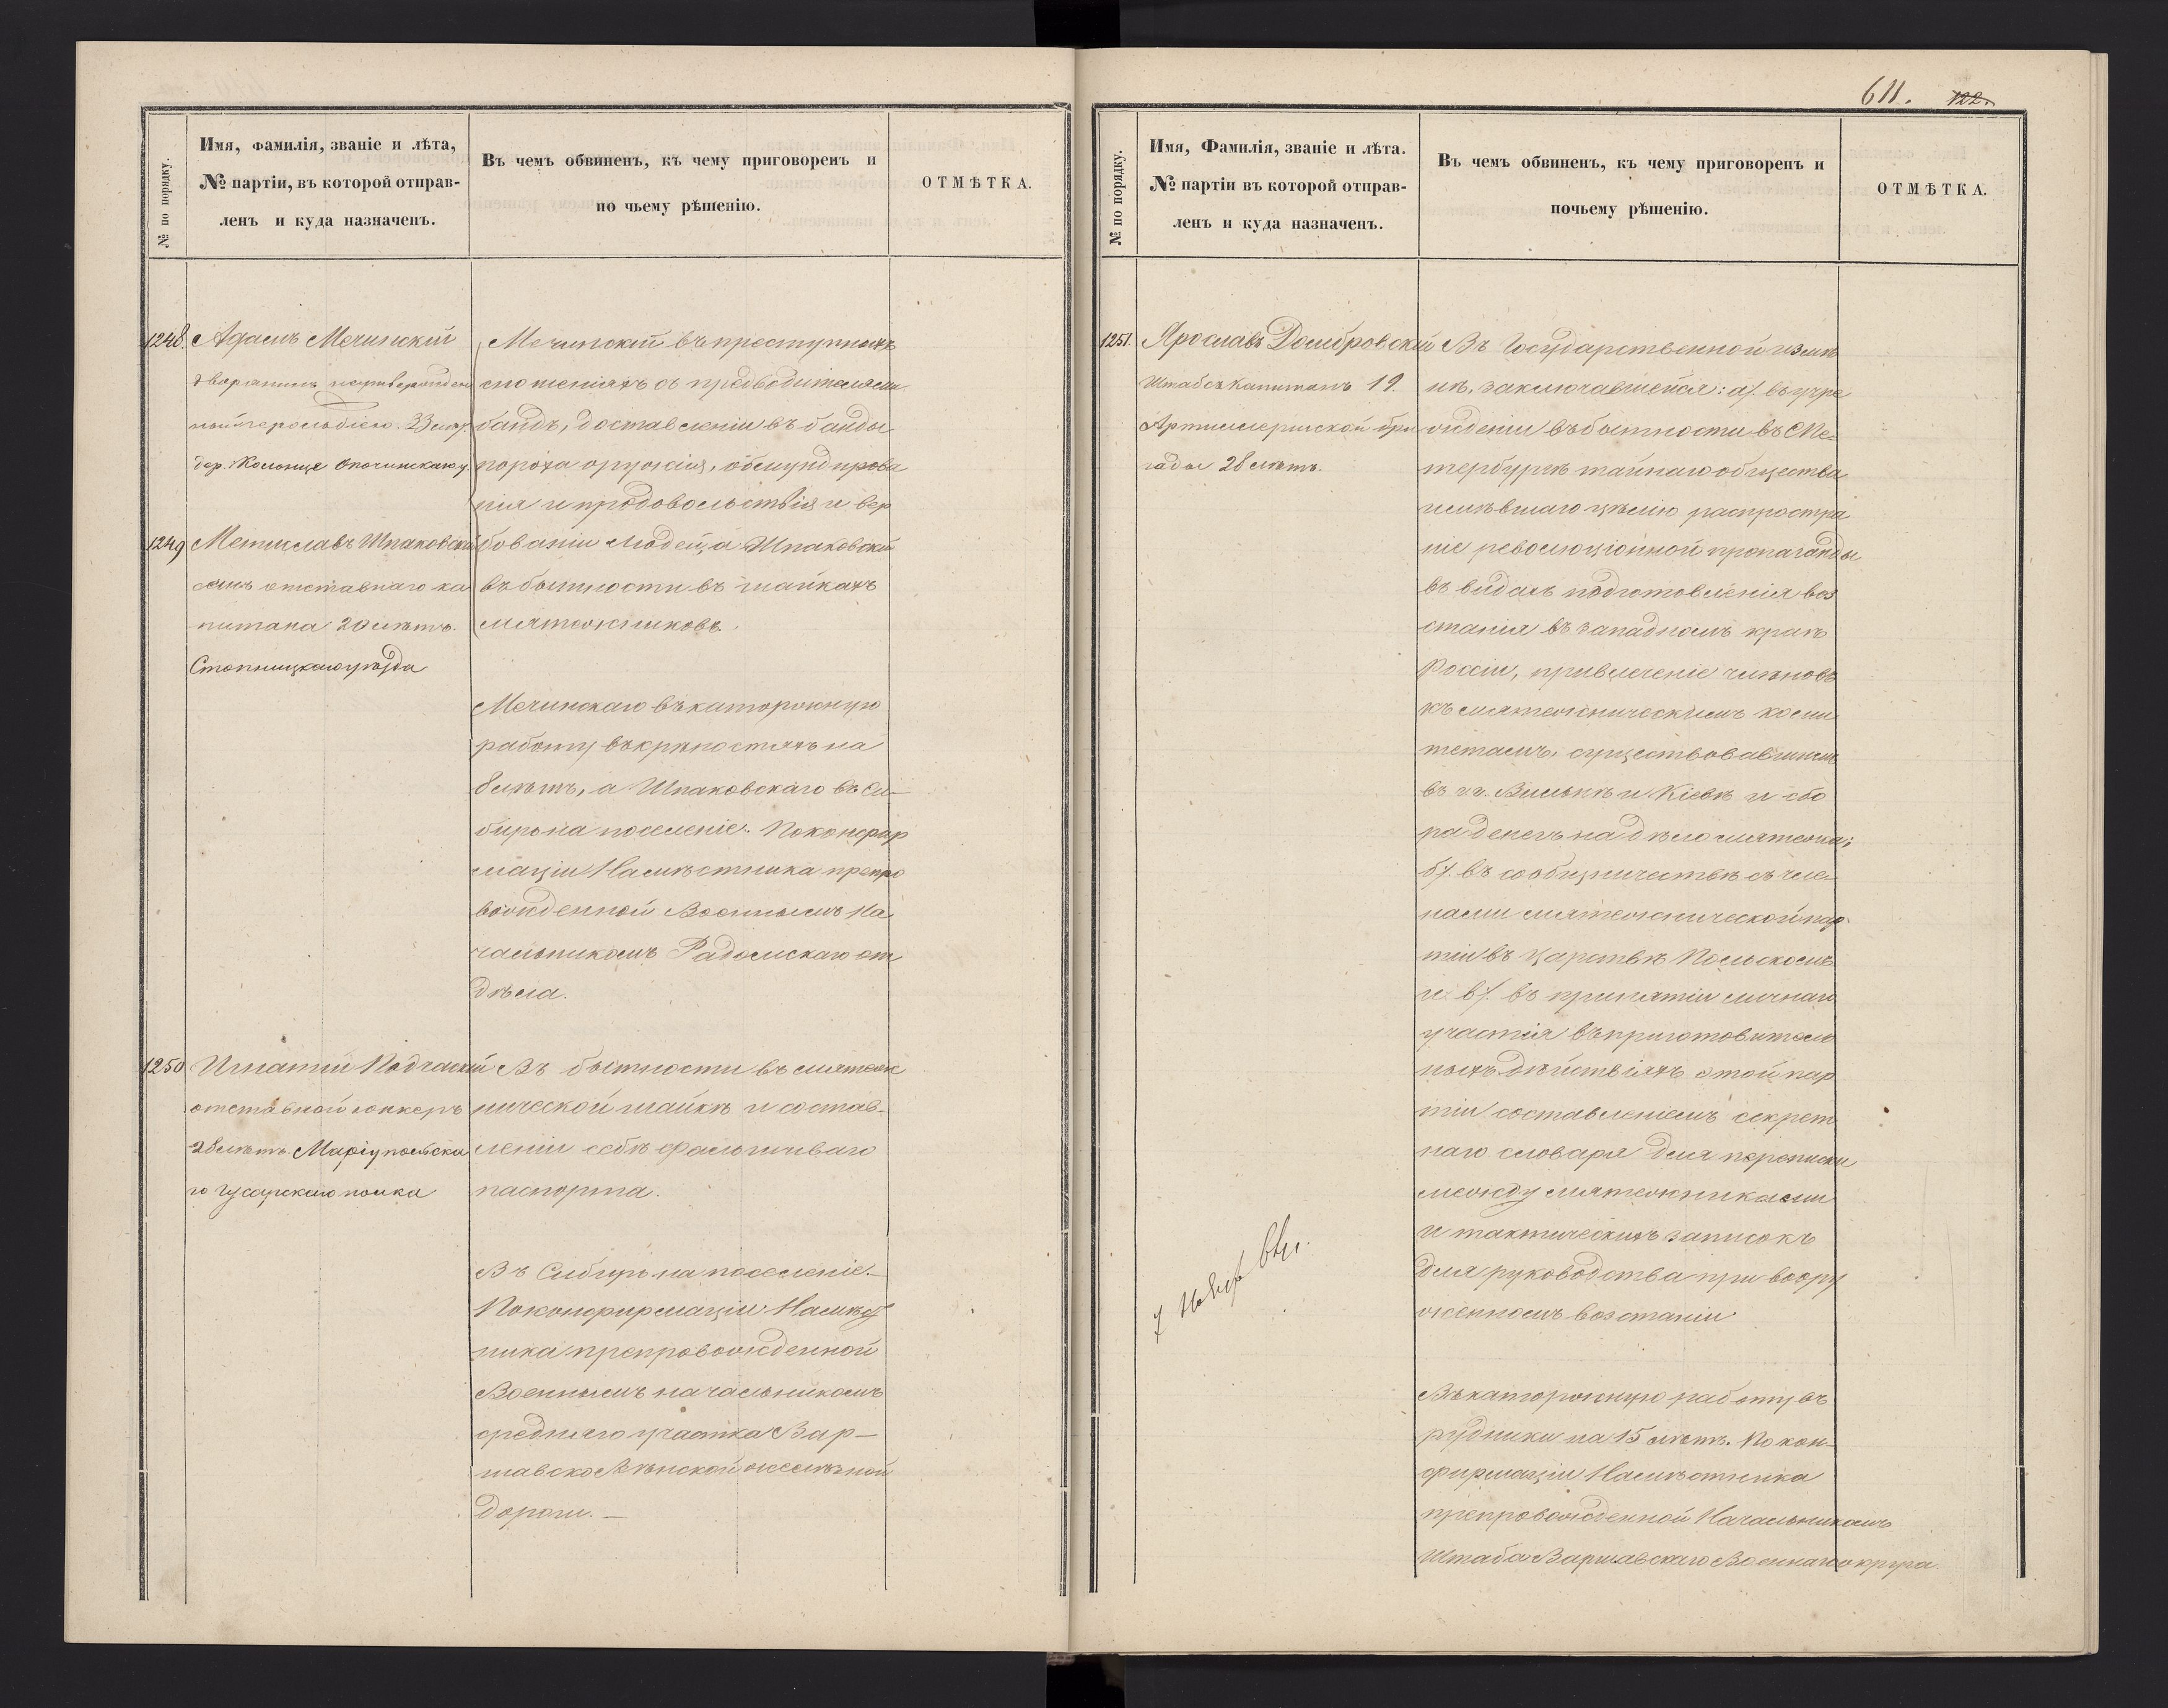 № по порядку.
Имя, фамилія, званіе и лѣта,
№ партіи, въ которой отправ-
ленъ и куда назначенъ.
Въ чемъ обвиненъ, къ чему приговоренъ и
по чьему рѣшенію.
ОТМѢТКА.
1248. Адамъ Мечинскій
дворянинъ неутвержден
ный герольдіею. 23 лѣт.
дер. Жолонце Опочинскаго у.
1249 Метиславъ Шпаковскій
сынъ отставнаго ка
питана 20 лѣтъ.
Стопницкаго уѣзда
Мечинскій въ преступныхъ
сношеніяхъ съ предводителями
бандъ, доставленіи въ банды
пороха оружія, обмундирова
нія и продовольствія и вер
бованіи людей, а Шпаковскій
въ бытности въ шайкахъ
мятежниковъ.
Мечинскаго въ каторжную
работу въ крѣпостяхъ на
8 лѣтъ, а Шпаковскаго въ Си-
бирь на поселеніе. По конфир
маціи Намѣстника препро
вожденной Военнымъ На
чальникомъ Радомскаго от
дѣла.
1250 Игнатій Подчаскій
отставной юнкеръ
28 лѣтъ Маріупольска
го Гусарскаго полка
Въ бытности въ мятеж
нической шайкѣ и состав-
леніи себѣ фальшиваго
паспорта.
Въ Сибирь на поселеніе.
По конфирмаціи Намѣст
ника препровожденной
Военнымъ начальникомъ
средняго участка Вар-
шавско Вѣнской желѣзной
дороги. —
611. 122.
№ по порядку.
Имя, Фамилія, званіе и лѣта.
№ партіи въ которой отправ-
ленъ и куда назначенъ.
Въ чемъ обвиненъ, къ чему приговоренъ и
почьему рѣшенію.
ОТМѢТКА.
1251. Ярославъ Домбровскій
Штабсъ Капитанъ 19.
Артиллерійской бри
гады 28 лѣтъ.
Въ Государственной измѣ
нѣ, заключавшейся: а/. въ учре
жденіи въ бытности въ СПе-
тербургѣ тайнаго общества
имѣвшаго цѣлію распростра
ніе революціонной пропаганды
въ видахъ подготовленія воз
станія въ западномъ краѣ
Россіи, привлеченіе членовъ
къ мятежническимъ коми
тетамъ, существовавшимъ
въ гг. Вильнѣ и Кіевѣ и сбо
ра денегъ на дѣло мятежа;
б/. въ сообщничествѣ съ чле-
нами мятежнической пар-
тіи въ Царствѣ Польскомъ
и в/. въ принятіи личнаго
участія въ приготовитель
ныхъ дѣйствіяхъ этой пар
тіи составленіемъ секрет
наго словаря для переписки
между мятежниками
и тактическихъ записокъ
для руководства при воору
женномъ возстаніи
Въ каторжную работу въ
рудники на 15 лѣтъ. По кон-
фирмаціи Намѣстника
препровожденной Начальникомъ
Штаба Варшавскаго Военнаго округа.